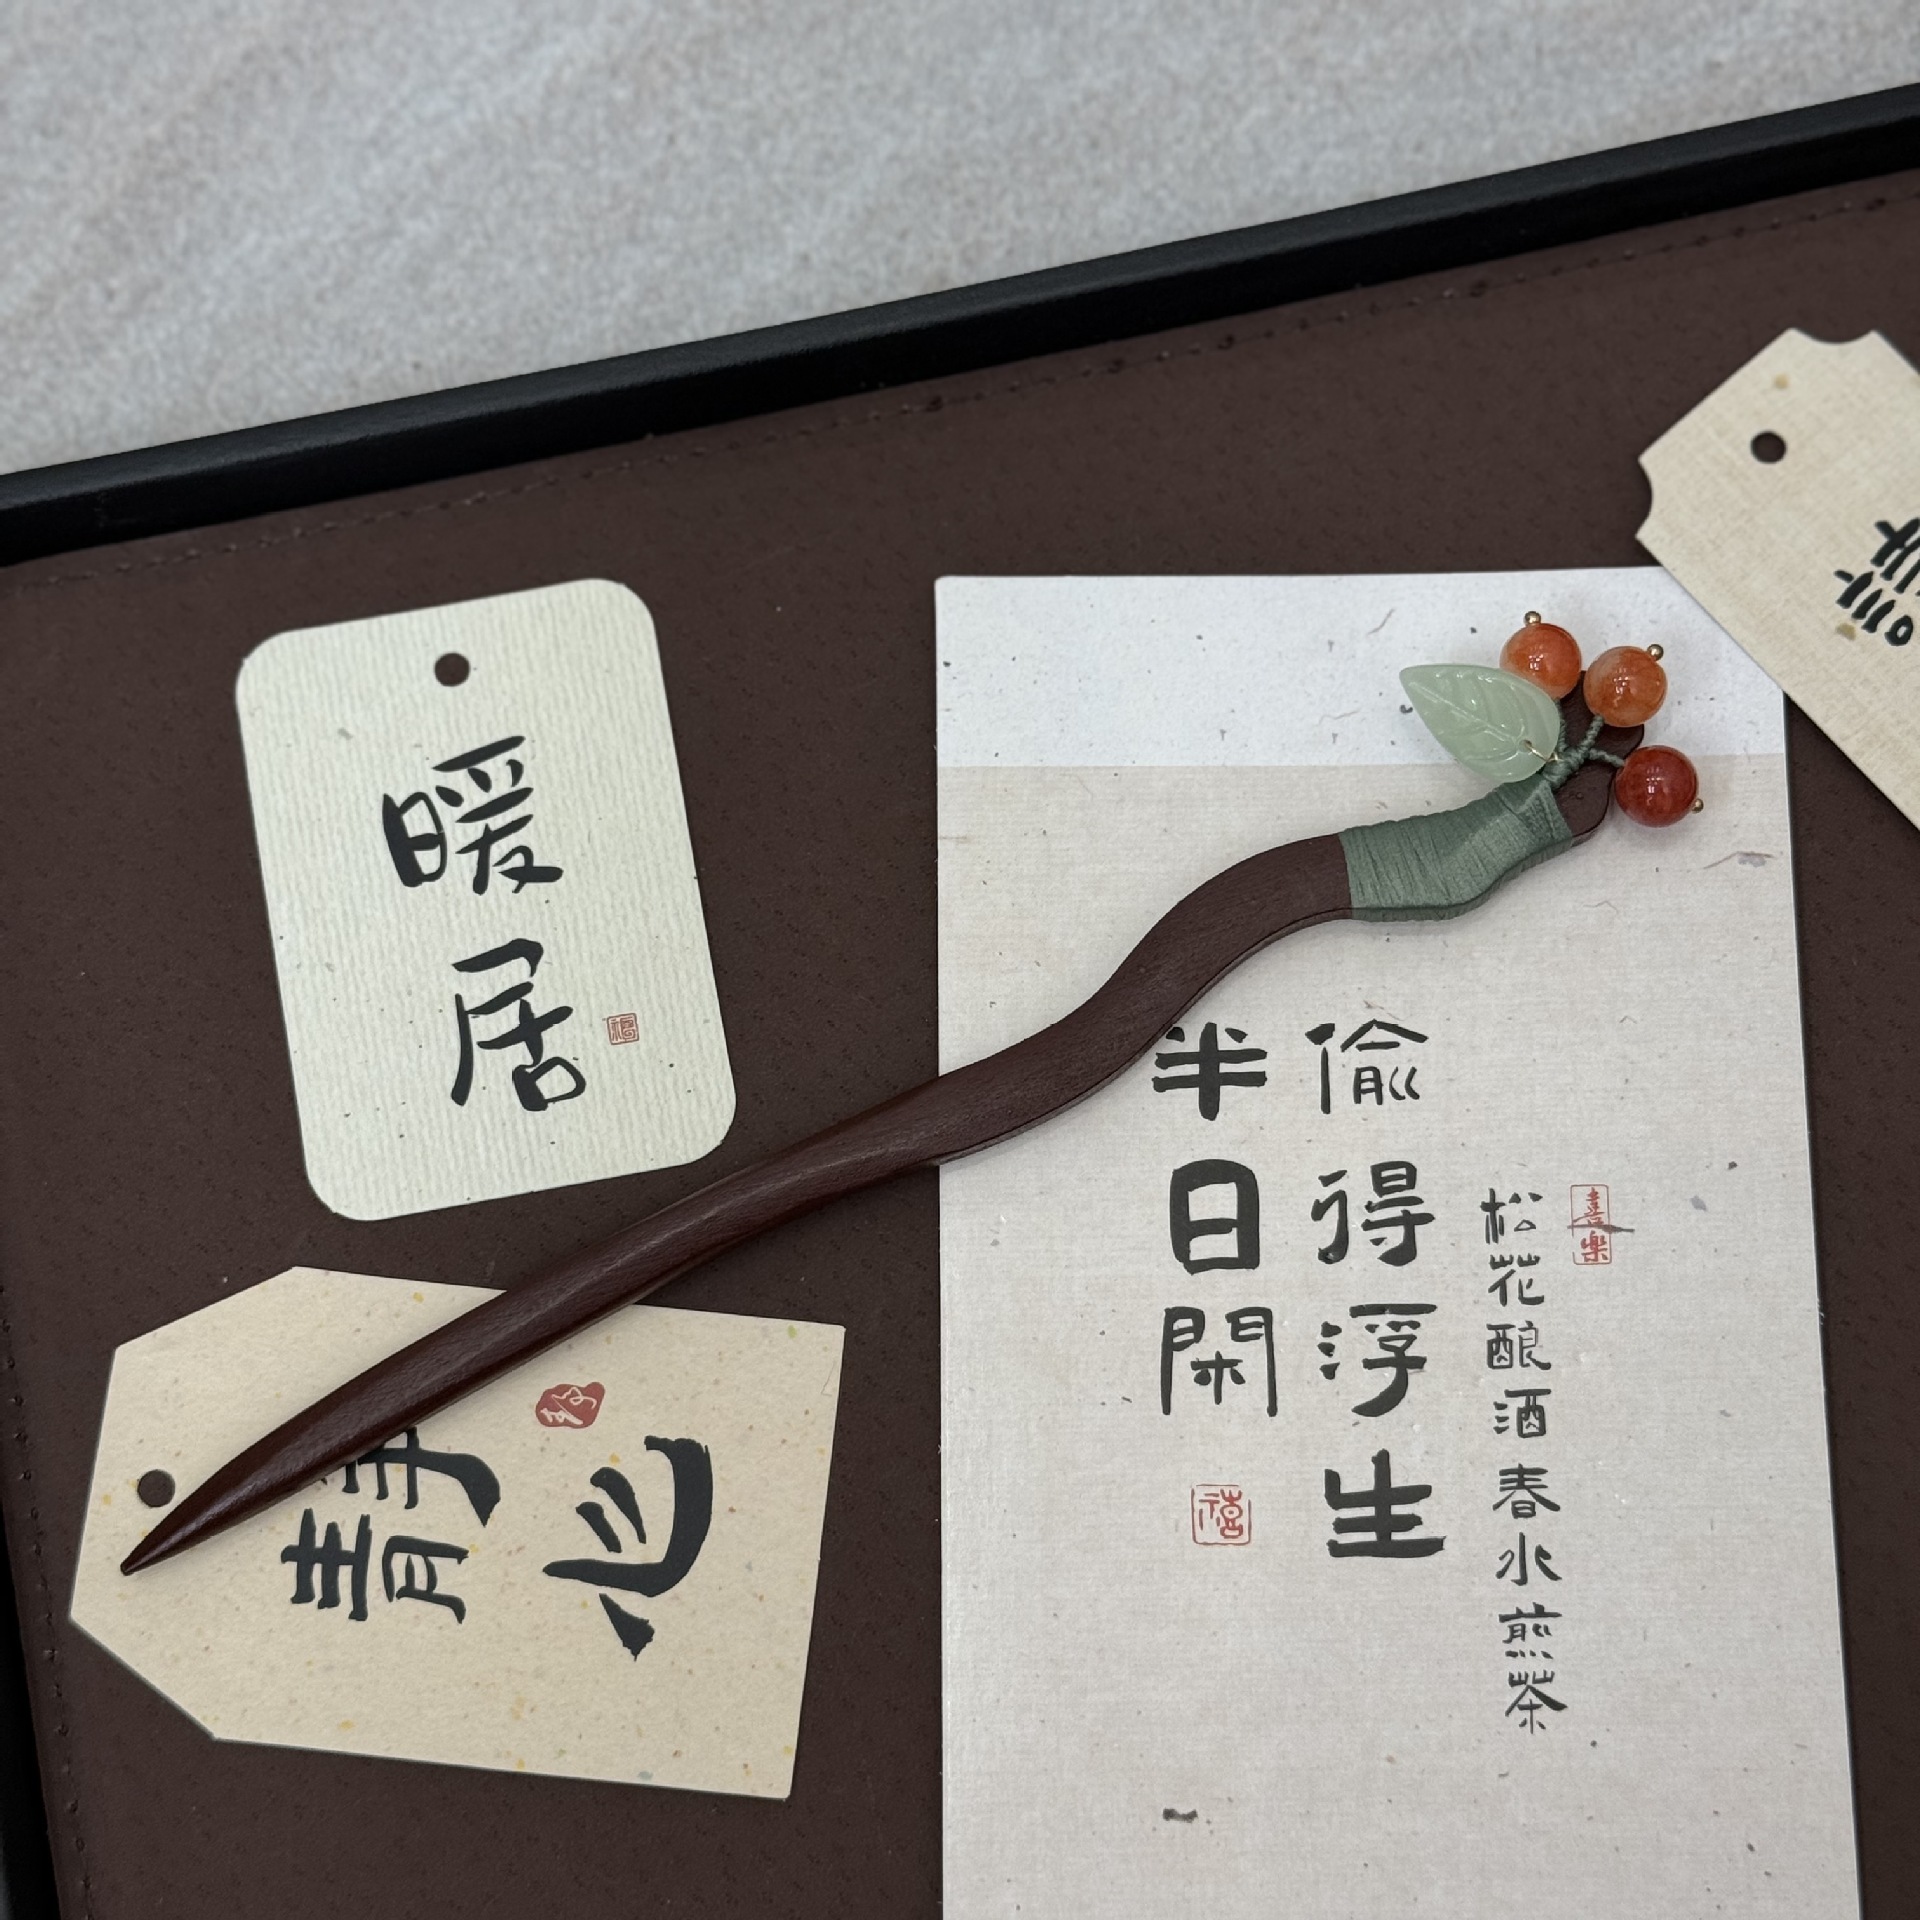 暖居
靜心
偷得浮生
半日閑
松花酿酒春水煎茶
喜樂
禧
福